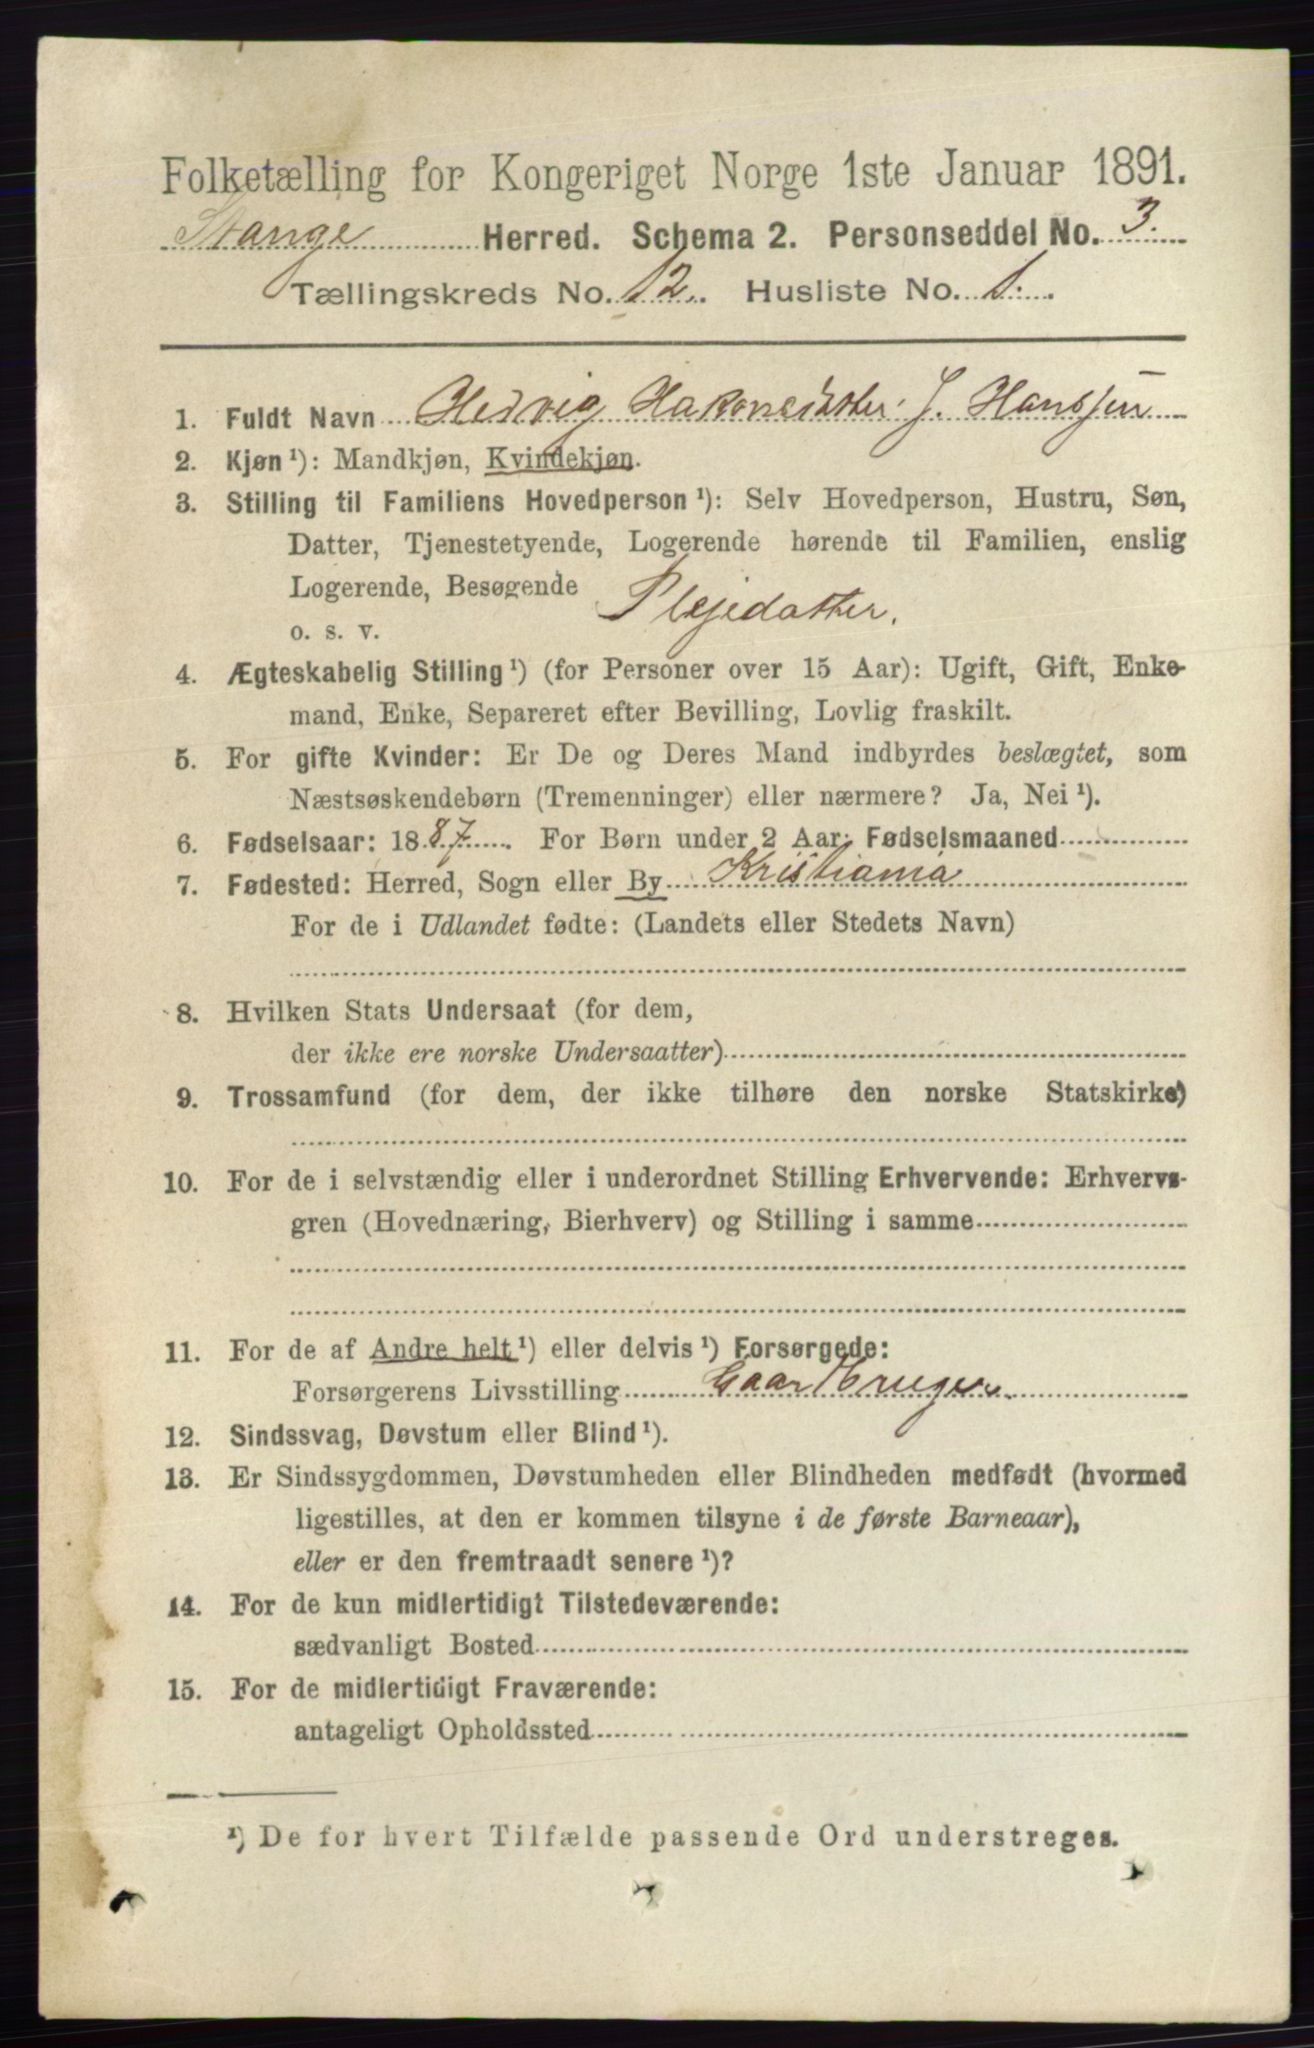 Folketælling for Kongeriget Norge 1ste Januar 1891.
Stange Herred. Schema 2. Personseddel No. 3.
Tællingskreds No. 12. Husliste No. 1.
1. Fuldt Navn Hedvig Hakonsdotter J. Hanssen
2. Kjøn ¹): Mandkjøn, Kvindekjøn.
3. Stilling til Familiens Hovedperson ¹): Selv Hovedperson, Hustru, Søn,
Datter, Tjenestetyende, Logerende hørende til Familien, enslig
Logerende, Besøgende
o. s. v. Plejedatter.
4. Ægteskabelig Stilling ¹) (for Personer over 15 Aar): Ugift, Gift, Enke-
mand, Enke, Separeret efter Bevilling, Lovlig fraskilt.
5. For gifte Kvinder: Er De og Deres Mand indbyrdes beslægtet, som
Næstsøskendebørn (Tremenninger) eller nærmere? Ja, Nei ¹).
6. Fødselsaar: 1887. For Børn under 2 Aar: Fødselsmaaned
7. Fødested: Herred, Sogn eller By Kristiania
For de i Udlandet fødte: (Landets eller Stedets Navn)
8. Hvilken Stats Undersaat (for dem,
der ikke ere norske Undersaatter)
9. Trossamfund (for dem, der ikke tilhøre den norske Statskirke)
10. For de i selvstændig eller i underordnet Stilling Erhvervende: Erhvervs-
gren (Hovednæring, Bierhverv) og Stilling i samme
11. For de af Andre helt ¹) eller delvis ¹) Forsørgede:
Forsørgerens Livsstilling Gaardbruger.
12. Sindssvag, Døvstum eller Blind ¹).
13. Er Sindssygdommen, Døvstumheden eller Blindheden medfødt (hvormed
ligestilles, at den er kommen tilsyne i de første Barneaar),
eller er den fremtraadt senere ¹)?
14. For de kun midlertidigt Tilstedeværende:
sædvanligt Bosted
15. For de midlertidigt Fraværende:
antageligt Opholdssted
¹) De for hvert Tilfælde passende Ord understreges.